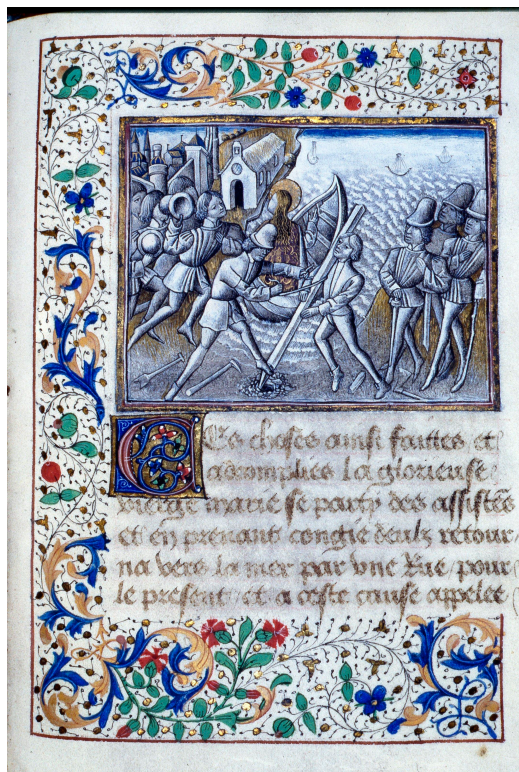 Ces choses ainsi faittes et
acomplies la glorieuse
vierge marie se party des assistes
et en prenant congie deulx retour
na vers la mer par vne Rue pour
le present et a ceste cause appelee